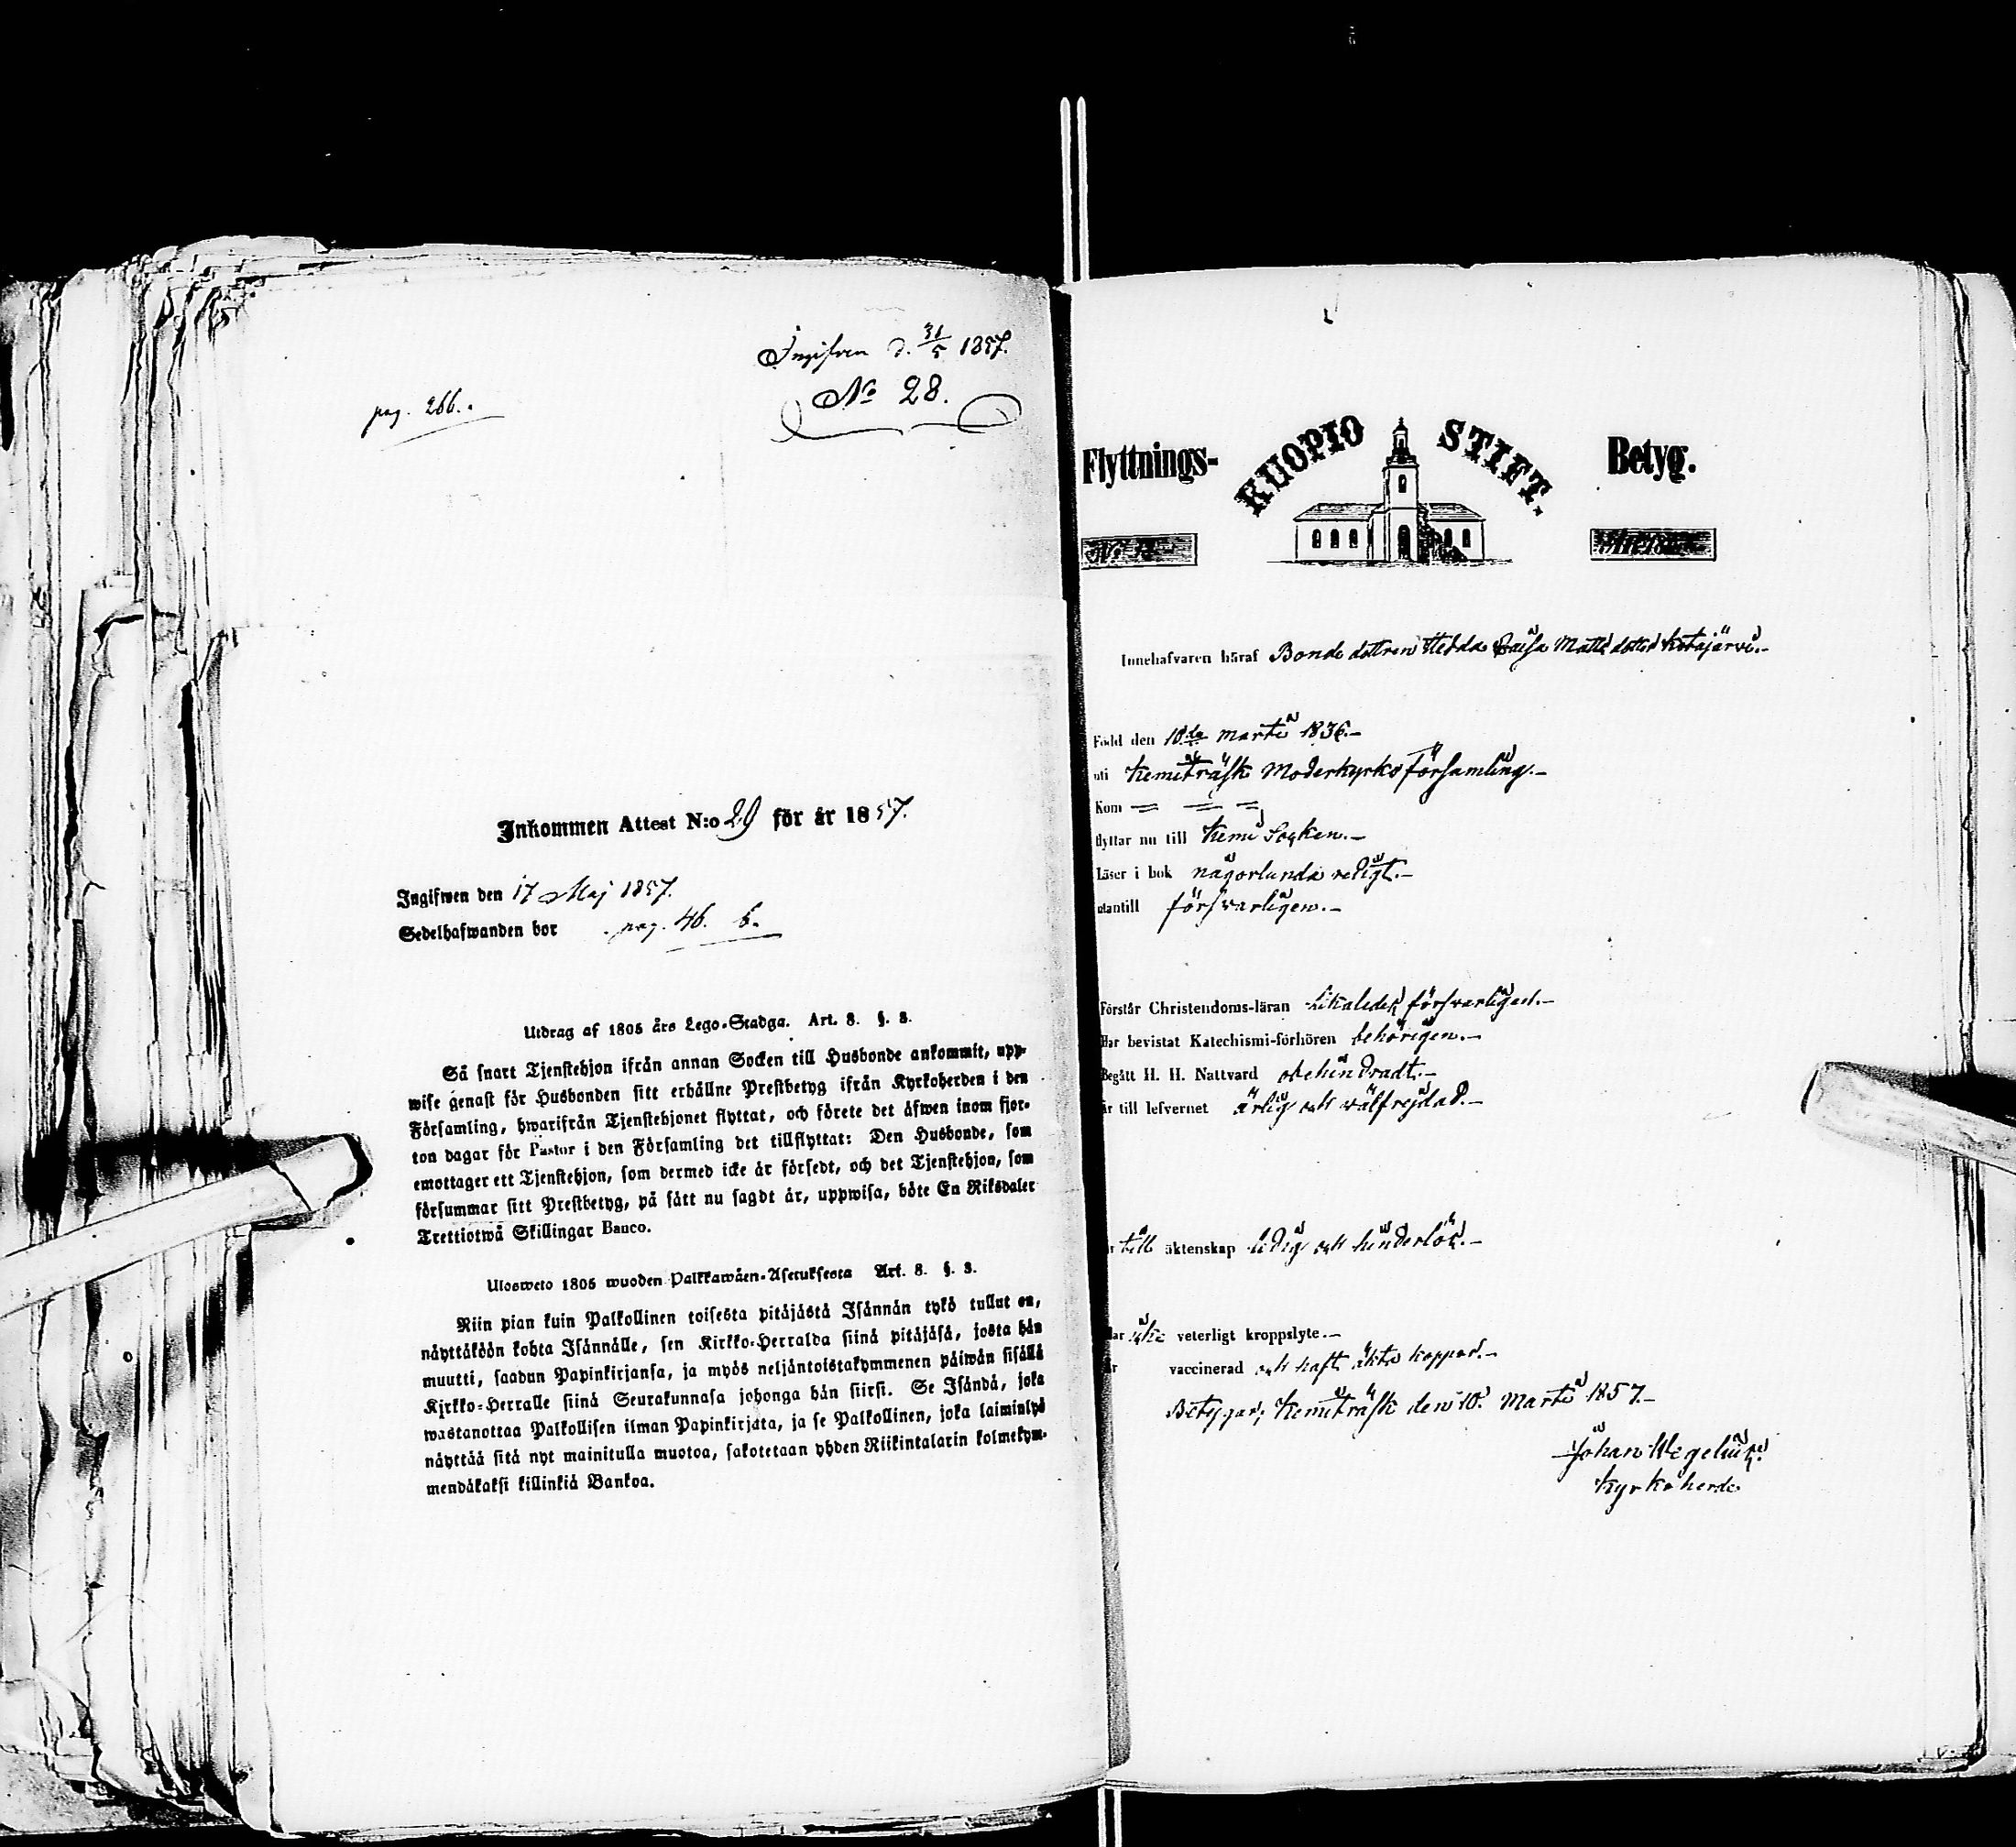 Ingifven d. 31/5 1857.
No 28.
pag. 266.
Inkommen Attest N:o 29 för år 1857.
Ingifwen den 17 Maj 1857.
Sedelhafwanden bor pag. 46. b.
Utdrag af 1805 års Lego-Stadga. Art. 8. §. 3.
Så snart Tjenstehjon ifrån annan Socken till Husbonde ankommit, upp-
wise genast för Husbonden sitt erhållne Prestbetyg ifrån Kyrkoherden i den
Församling, hwarifrån Tjenstehjonet flyttat, och förete det äfwen inom fjor-
ton dagar för Pastor i den Församling det tillflyttat: Den Husbonde, som
emottager ett Tjenstehjon, som dermed icke är försedt, och det Tjenstehjon, som
försummar sitt Prestbetyg, på sätt nu sagdt är, uppwisa, böte En Riksdaler
Trettiotwå Skillingar Banco.
Ulosweto 1805 wuoden Palkkawäen-Asetuksesta Art. 8. §. 3.
Niin pian kuin Palkollinen toisesta pitäjästä Isännän tykö tullut on,
näyttäköön kohta Isännälle, sen Kirkko-Herralda siinä pitäjäsä, josta hän
muutti, saadun Papinkirjansa, ja myös neljäntoistakymmenen päiwän sisällä
Kirkko-Herralle siinä Seurakunnasa johonga hän siirsi. Se Isändä, joka
wastanottaa Palkollisen ilman Papinkirjata, ja se Palkollinen, joka laiminlyö
näyttää sitä nyt mainitulla muotoa, sakotetaan yhden Riikintalarin kolmekym-
mendäkaksi killinkiä Bankoa.
Flyttnings- KUOPIO STIFT. Betyg.
Innehafvaren häraf Bonde dottren Hedda Caisa Matts dotter Ketajärvi.
Född den 10de Martii 1836.
uti Kemiträsk Moderkyrko Församling.
Kom
flyttar nu till Kemi Socken.
Läser i bok någorlunda redigt.
utantill försvarligen.
Förstår Christendoms-läran likaledes försvarligen.
Har bevistat Katechismi-förhören behörigen.
Begått H. H. Nattvard obehindradt.
är till lefvernet ärlig och välfrejdad.
till äktenskap ledig och hinderlös.
Har icke veterligt kroppslyte.
är vaccinerad och haft äkta koppor.
Betygar, Kemiträsk den 10. Martii 1857.
Johan Wegelius.
Kyrkoherde